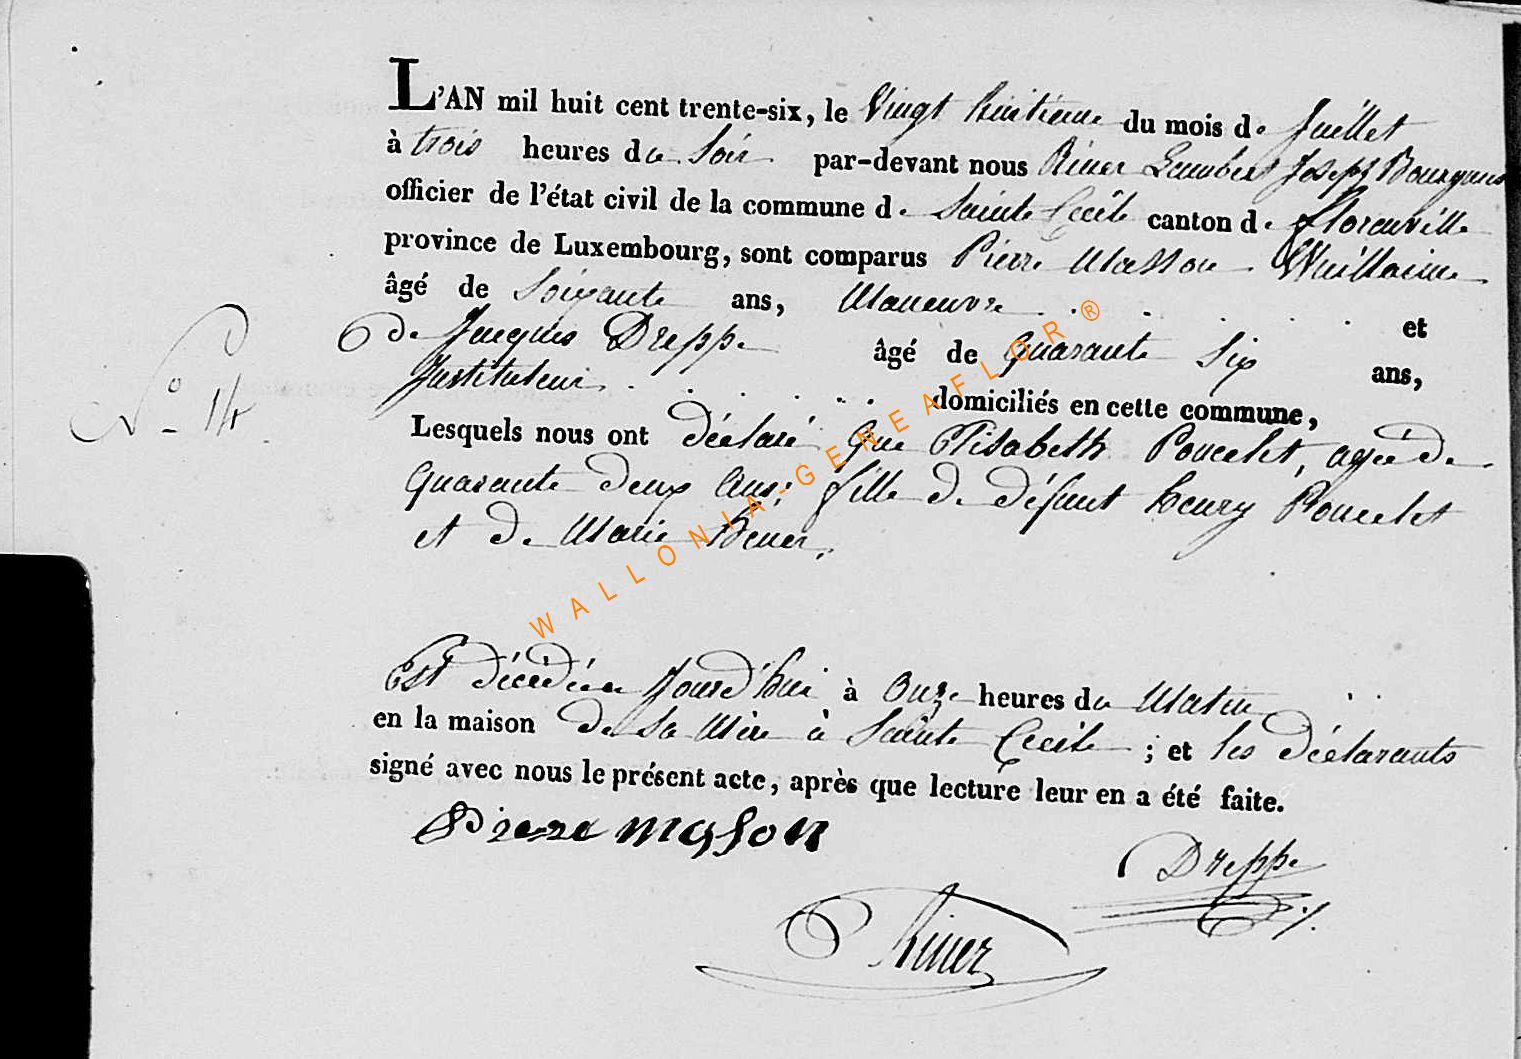 L'AN mil huit cent trente-six, le Vingt huitieme du mois de Juillet
à trois heures du Soir par-devant nous Riner Lambert Joseph Bourgmes
officier de l'état civil de la commune de Sainte Cecile canton de Florenville
province de Luxembourg, sont comparus Pierre Masson Vuillaime
âgé de Soixante ans, Maneuvre et
de Jacques Dreppe âgé de Quarante Six ans,
Instituteur domiciliés en cette commune,
N° 14.
Lesquels nous ont déclaré Que Elisabeth Poncelet, agée de
Quarante deux Ans; fille de défunt henry Poncelet
et de Marie
Est décédée Jourd'hui à Onze heures du Matin
en la maison de Sa Mère à Sainte Cecile ; et les déclarants
signé avec nous le présent acte, après que lecture leur en a été faite.
Piere masson
Dreppe
Riner
WALLONIA-GENEAFLOR®